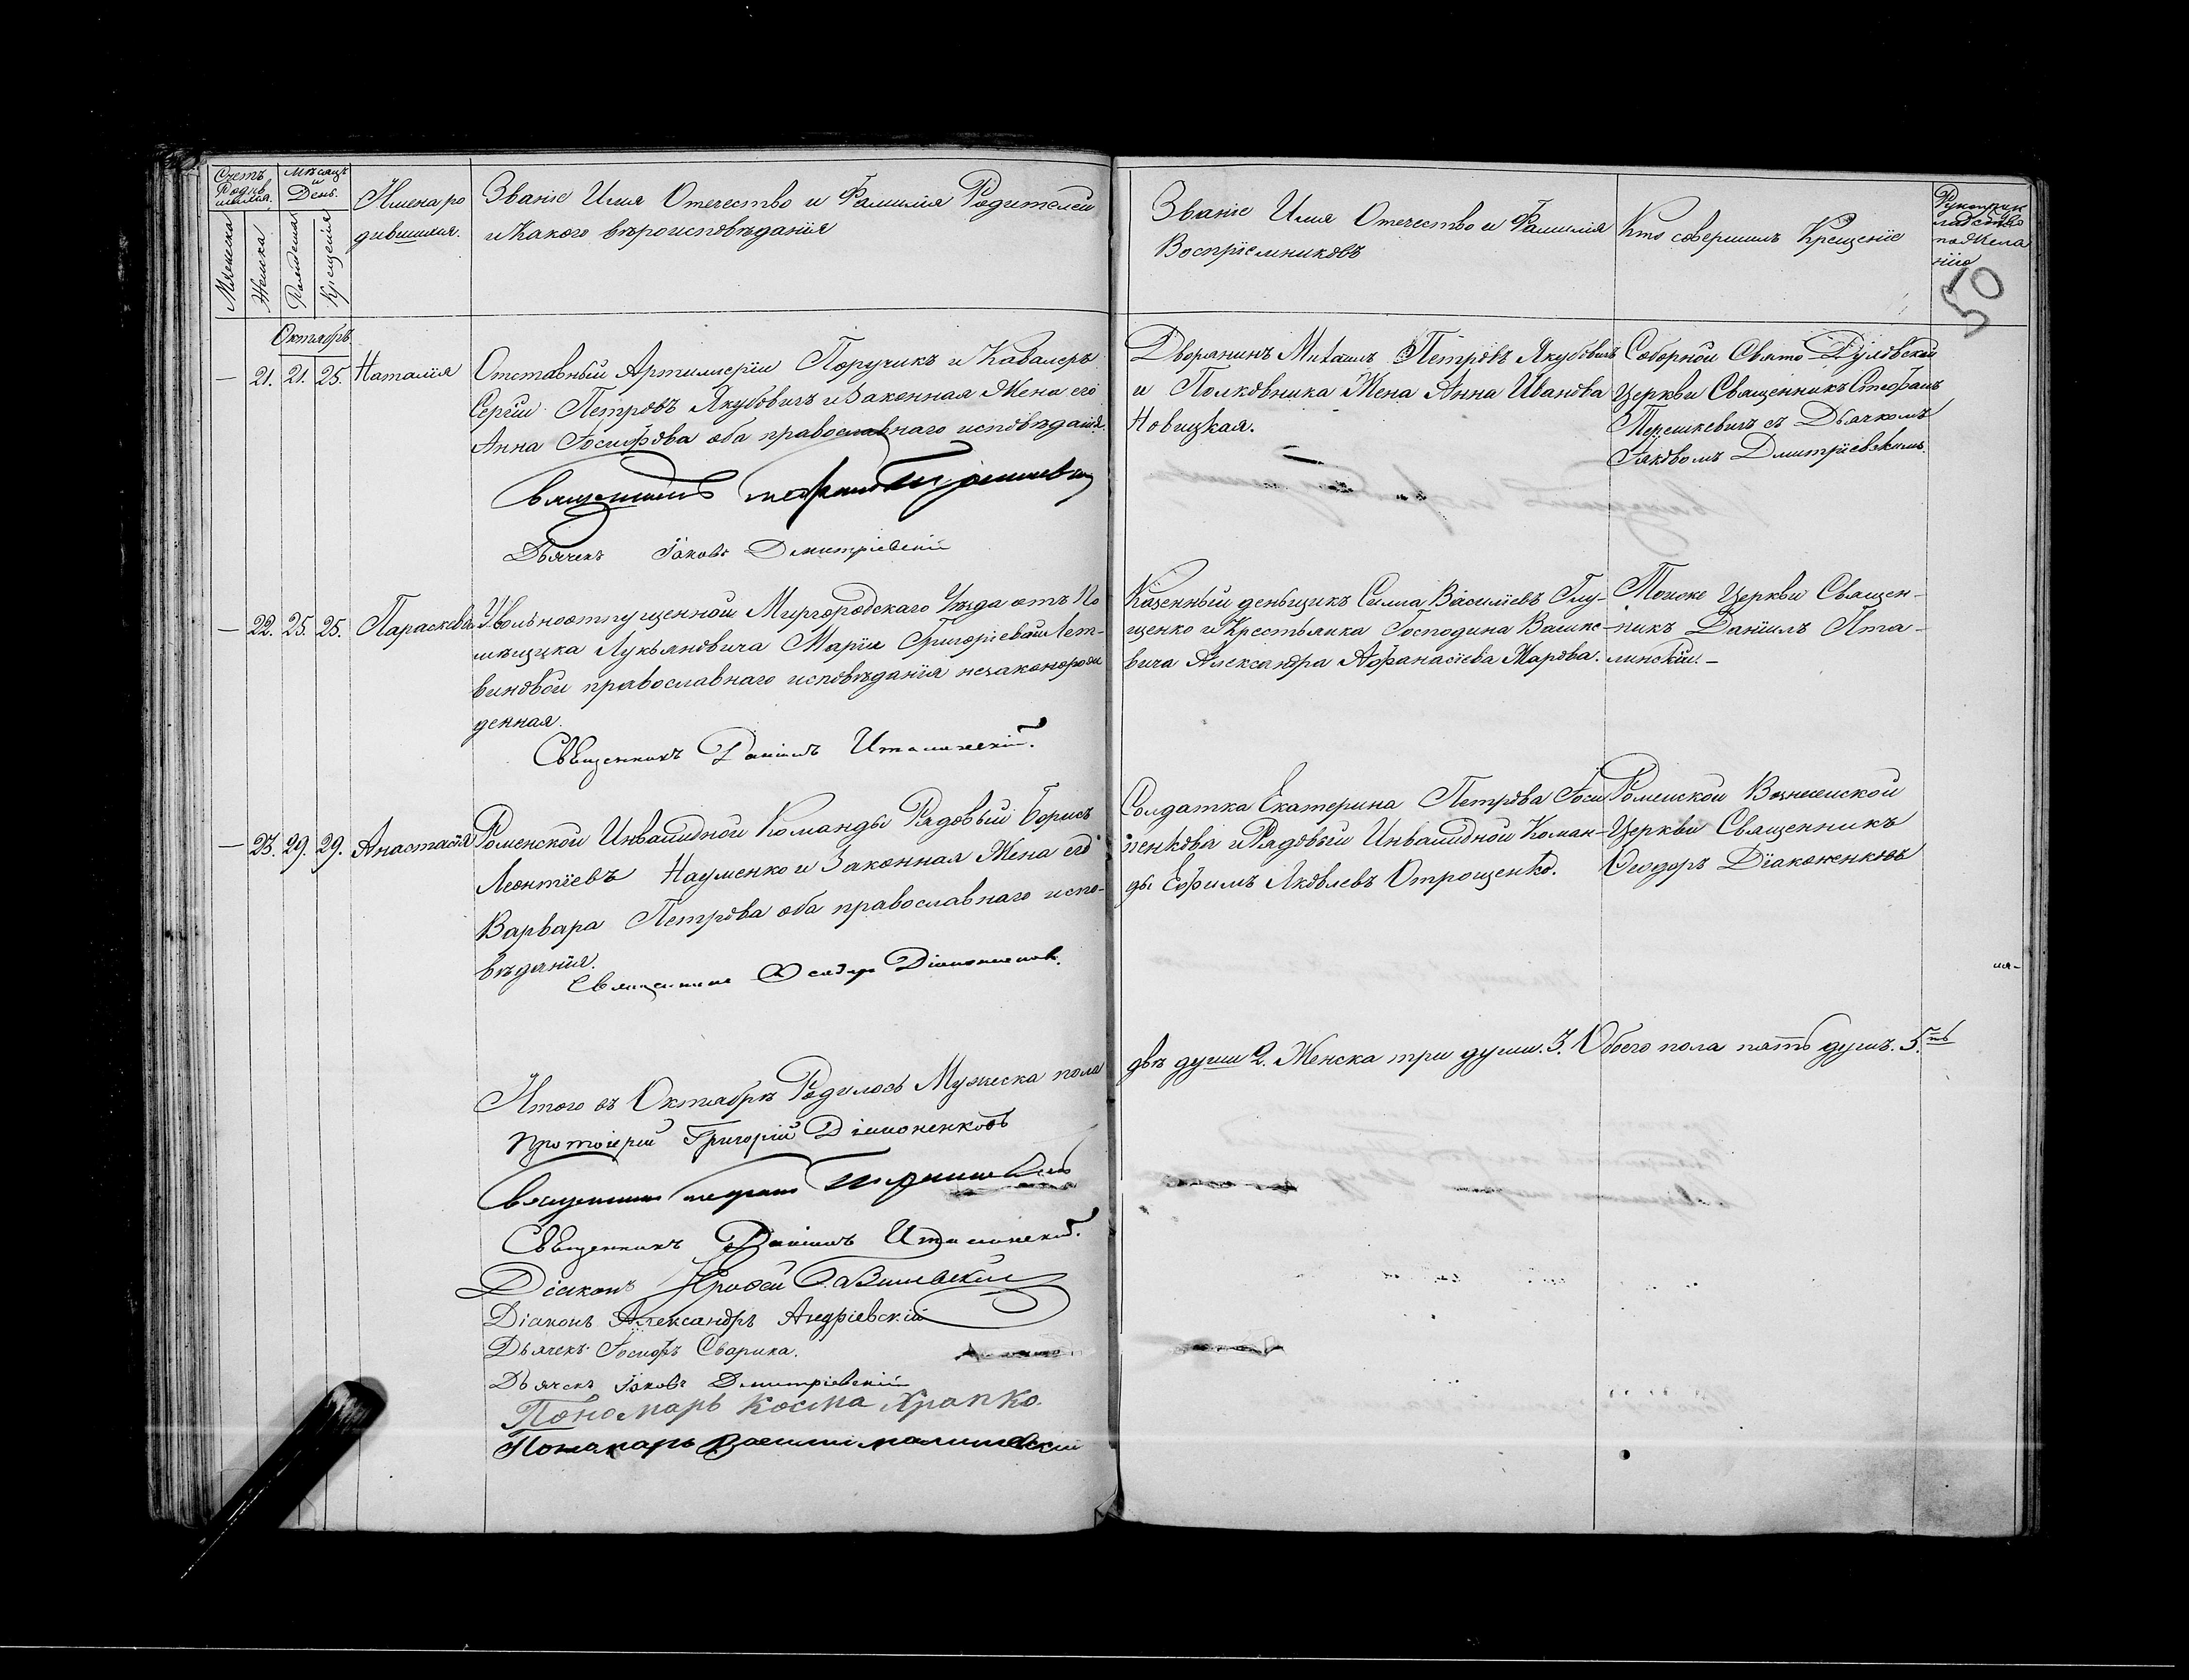 Счетъ Родив шихся.
Мѣсяцъ и День.
Мужеска
Женска
Рожденія
Крещенія
Имена ро
дившихся.
Званіе Имя Отечество и Фамилія Родителей
и Какого вѣроисповѣданія
Званіе Имя Отечество и Фамилія
Воспріемниковъ
Кто совершилъ Крещеніе
50
Октябрь
— 21. 21. 25. Наталія
Отставный Артиллеріи Поручикъ и Кавалеръ
Сергій Петровъ Якубовичъ и Законная Жена его
Анна Іосифова оба православнаго исповѣданія.
Священникъ Стефанъ Терешкевичъ
Дьячекъ Іаковъ Дмитріевскій
Дворянинъ Михаилъ Петровъ Якубовичъ
и Полковника Жена Анна Иванова
Новицкая.
Соборной Свято Духовской
Церкви Священникъ Стефанъ
Терешкевичъ съ Дьячкомъ
Іаковомъ Дмитріевскимъ.
— 22. 25. 25. Параскева
Увольноотпущенной Миргородскаго Уѣзда отъ По
мѣщика Лукьяновича Маріи Григоріевой Лит-
виновой православнаго исповѣданія незаконорож
денная.
Священникъ Даніилъ Италинскій.
Казенный деньщикъ Сила Василіевъ Глу-
щенко и Крестьянка Господина
вича Александра Афанасіева Марова.
Тоиже Церкви Священ-
никъ Даніилъ Ита-
линскій. —
— 23. 29. 29. Анастасія
Роменской Инвалидной Команды Рядовый Борисъ
Леонтіевъ Науменко и Законная Жена его
Варвара Петрова оба православнаго испо-
вѣданія.
Священникъ Ѳеодоръ Діаконенковъ.
Солдатка Екатерина Петрова Іоси
пенкова и Рядовый Инвалидной Коман-
ды Ефимъ Яковлевъ Отрощенко.
Роменской Вознесенской
Церкви Священникъ
Ѳеодоръ Діаконенковъ
Итого въ Октябрѣ Родилось Мужеска пола
двѣ души 2. Женска три души. 3. Обоего пола пять душъ. 5.ть
Протоіерей Григорій Діаконенковъ
Священникъ Стефанъ Терешкевичъ
Священникъ Даніилъ Италинскій.
Діаконъ
Діаконъ Александръ Андріевскій
Дьячекъ Іосифъ Сварика.
Дьячекъ Іаковъ Дмитріевскій
Пономарь Косма Храпко.
Пономарь Василій Малишевскій